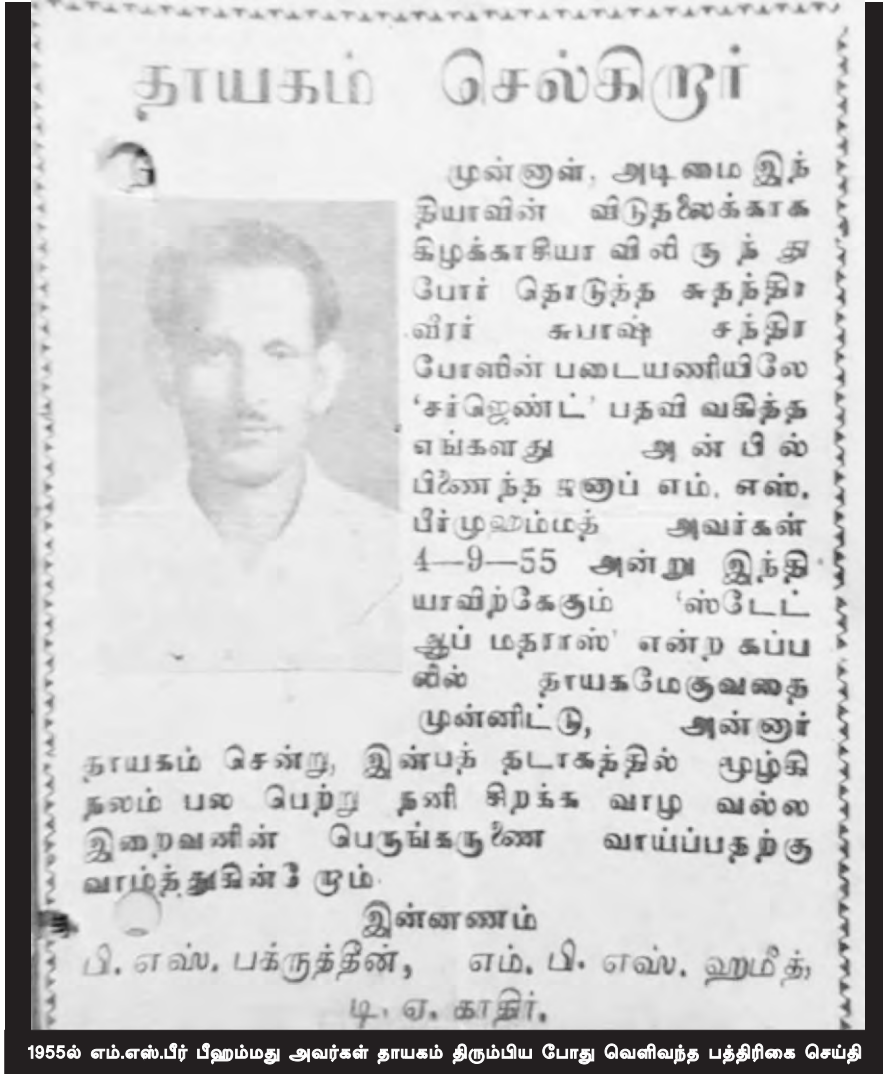 தாயகம் செல்கிறார்
முன்னாள், அடிமை இந்
தியாவின் விடுதலைக்காக
கிழக்காசியா விலி ரு ந் து
போர் தொடுத்த சுதந்திர
வீரர் சுபாஷ் சந்திர
போஸின் படையணியிலே
‘சர்ஜெண்ட்’ பதவி வகித்த
எங்களது அ ன் பி ல்
பிணைந்த ஜனாப் எம். எஸ்.
பீர்முஹம்மத் அவர்கள்
4—9—55 அன்று இந்தி
யாவிற்கேகும் ‘ஸ்டேட்
ஆப் மதராஸ்’ என்ற கப்ப
லில் தாயகமேகுவதை
முன்னிட்டு, அன்னார்
தாயகம் சென்று, இன்பத் தடாகத்தில் மூழ்கி
நலம் பல பெற்று நனி சிறக்க வாழ வல்ல
இறைவனின் பெருங்கருணை வாய்ப்பதற்கு
வாழ்த்துகின்றோம்.
இன்னணம்
பி. எஸ். பக்ருத்தீன், எம். பி. எஸ். ஹமீத்,
டி. ஏ. காதிர்.
1955ல் எம்.எஸ்.பீர் பீஹம்மது அவர்கள் தாயகம் திரும்பிய போது வெளிவந்த பத்திரிகை செய்தி